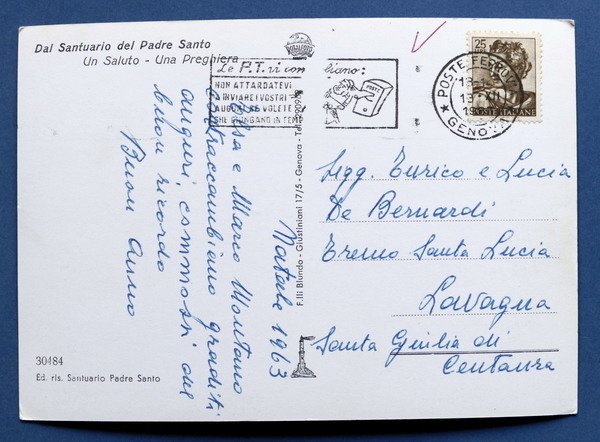 Dal Santuario del Padre Santo
Un Saluto - Una Preghiera
Le P.T. vi con iano:
NON ATTARDATEVI
A INVIARE I VOSTRI
AUGURI SE VOLETE
CHE GIUNGANO IN TEMPO
POSTE
25
POSTE FERROV
GENOVA
POSTE ITALIANE
Natale 1963
Elsa e Mario Montano
contraccambiano graditi
auguri, commossi del
buon ricordo
Buon Anno
F.lli Blundo - Giustiniani 17/5 - Genova - Tel.
Segg. Enrico e Lucia
De Bernardi
Eremo Santa Lucia
Lavagna
Santa Giulia di
Centaura
30484
Ed. ris. Santuario Padre Santo